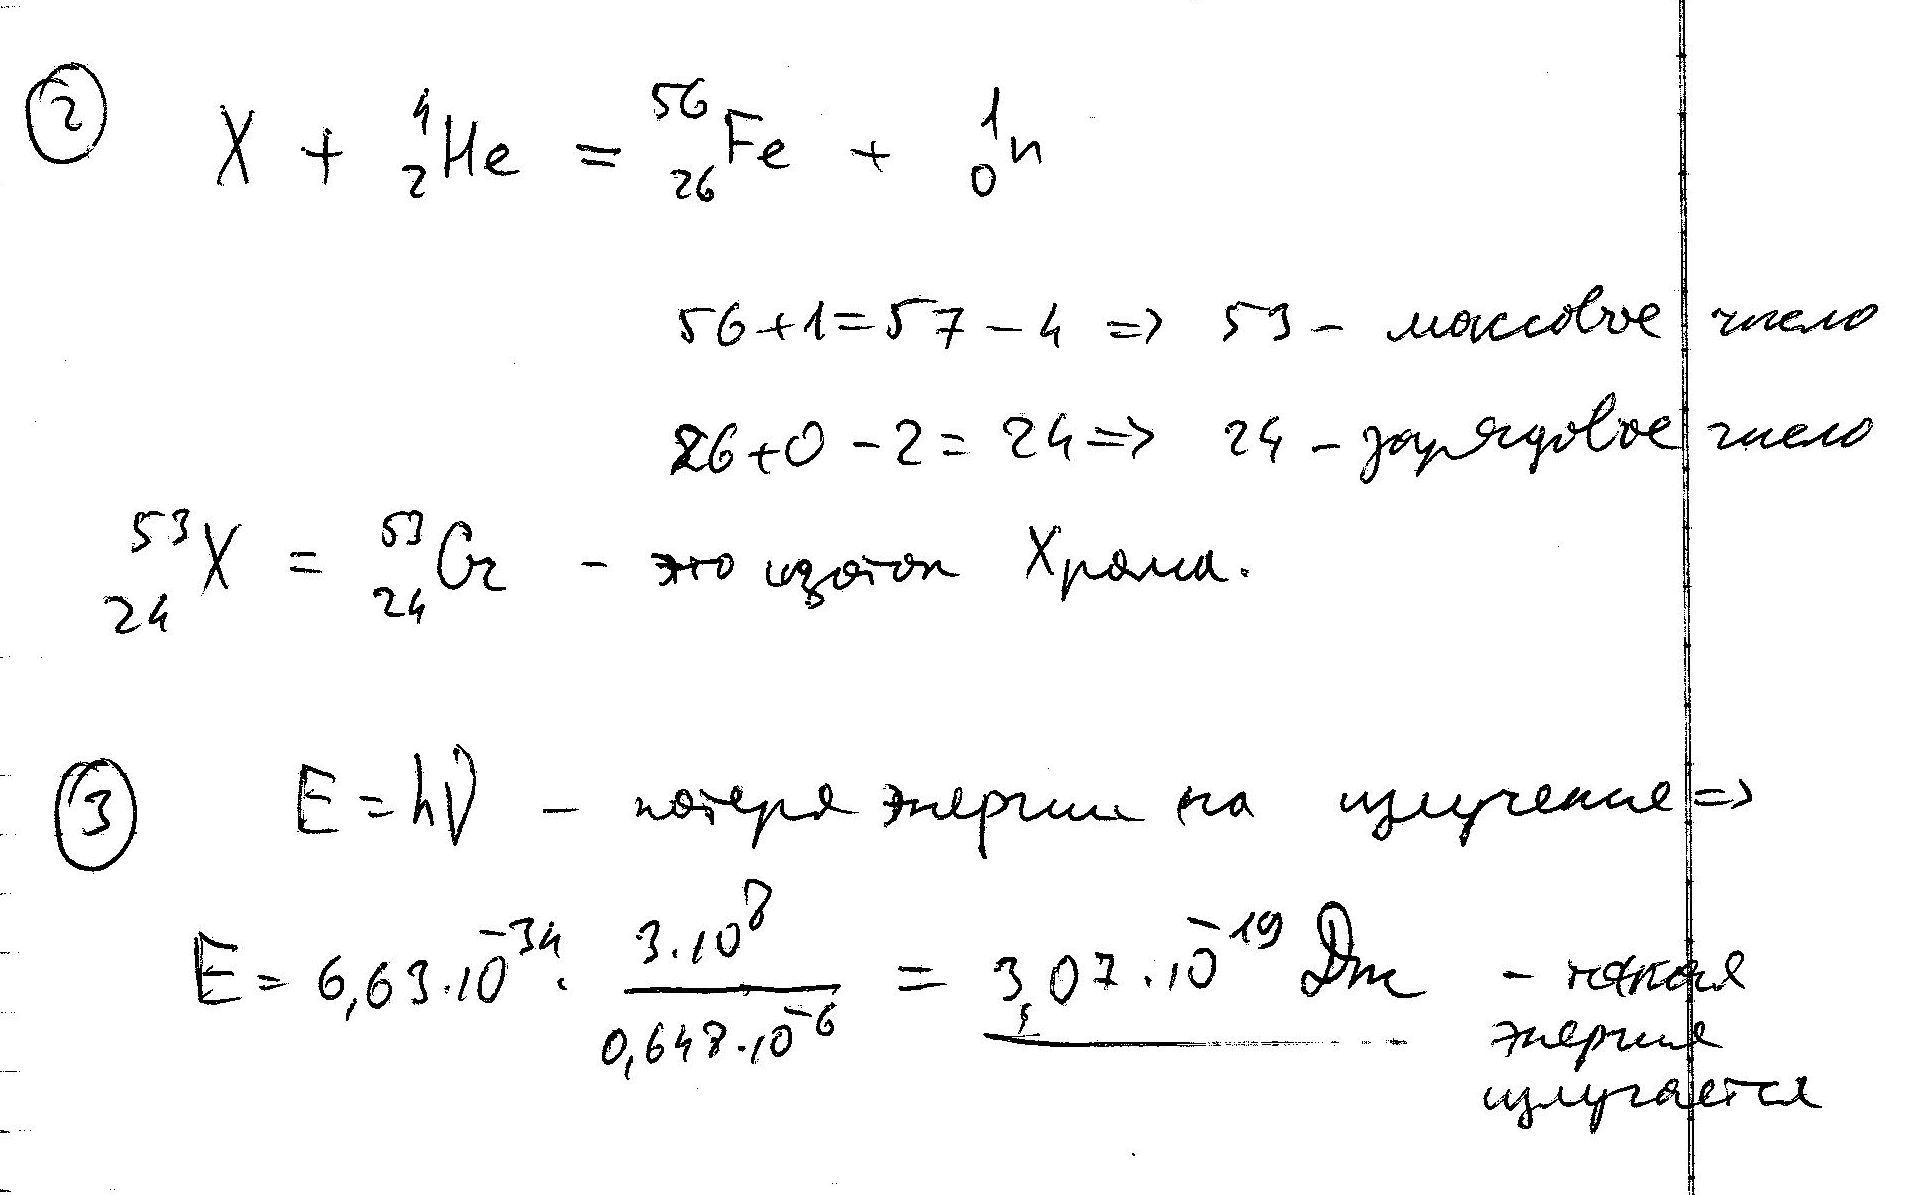 ② X + ⁴₂He = ⁵⁶₂₆Fe + ¹₀n
56+1=57-4 => 53 - массовое число
26+0-2=24=> 24 - зарядовое число
⁵³₂₄X = ⁵³₂₄Cr - это изотоп Хрома.
③ E=hν - потеря энергии на излучение =>
E= 6,63·10⁻³⁴· 3·10⁸ / 0,648·10⁻⁶ = 3,07·10⁻¹⁹ Дж - такая
энергия
излучается